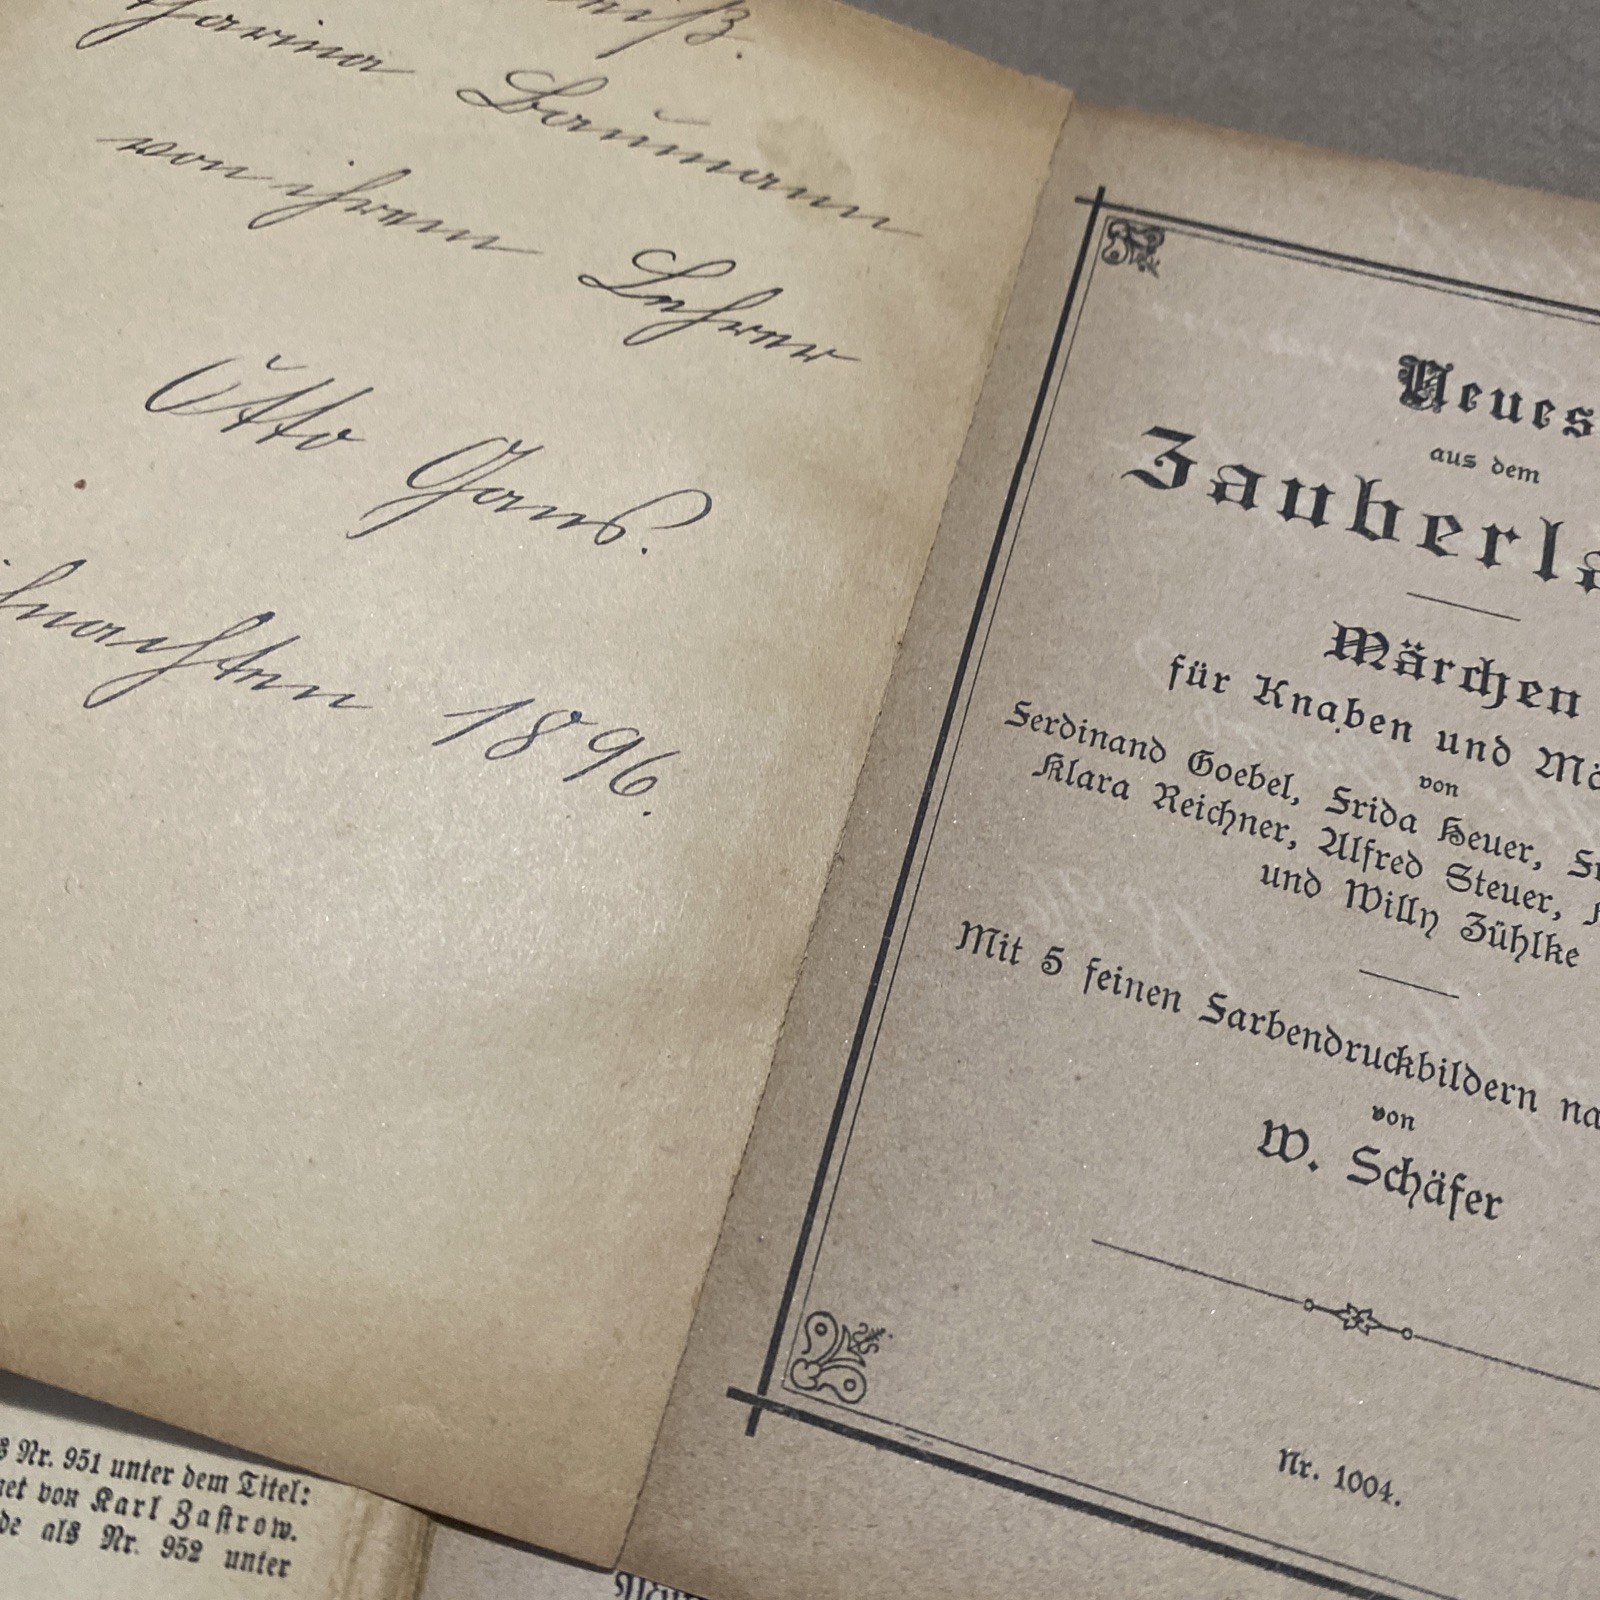 Baumann
von ihrem Lehrer
Otto Gans.
1896.
Neues
aus dem
Märchen
für Knaben und
von
Ferdinand Goebel, Frida Heuer,
Klara Reichner, Alfred Steuer,
und Willy Zühlke
Mit 5 feinen Farbendruckbildern
von
W. Schäfer
Nr. 1004.
Nr. 951 unter dem Titel:
von Karl Zastrow.
als Nr. 952 unter